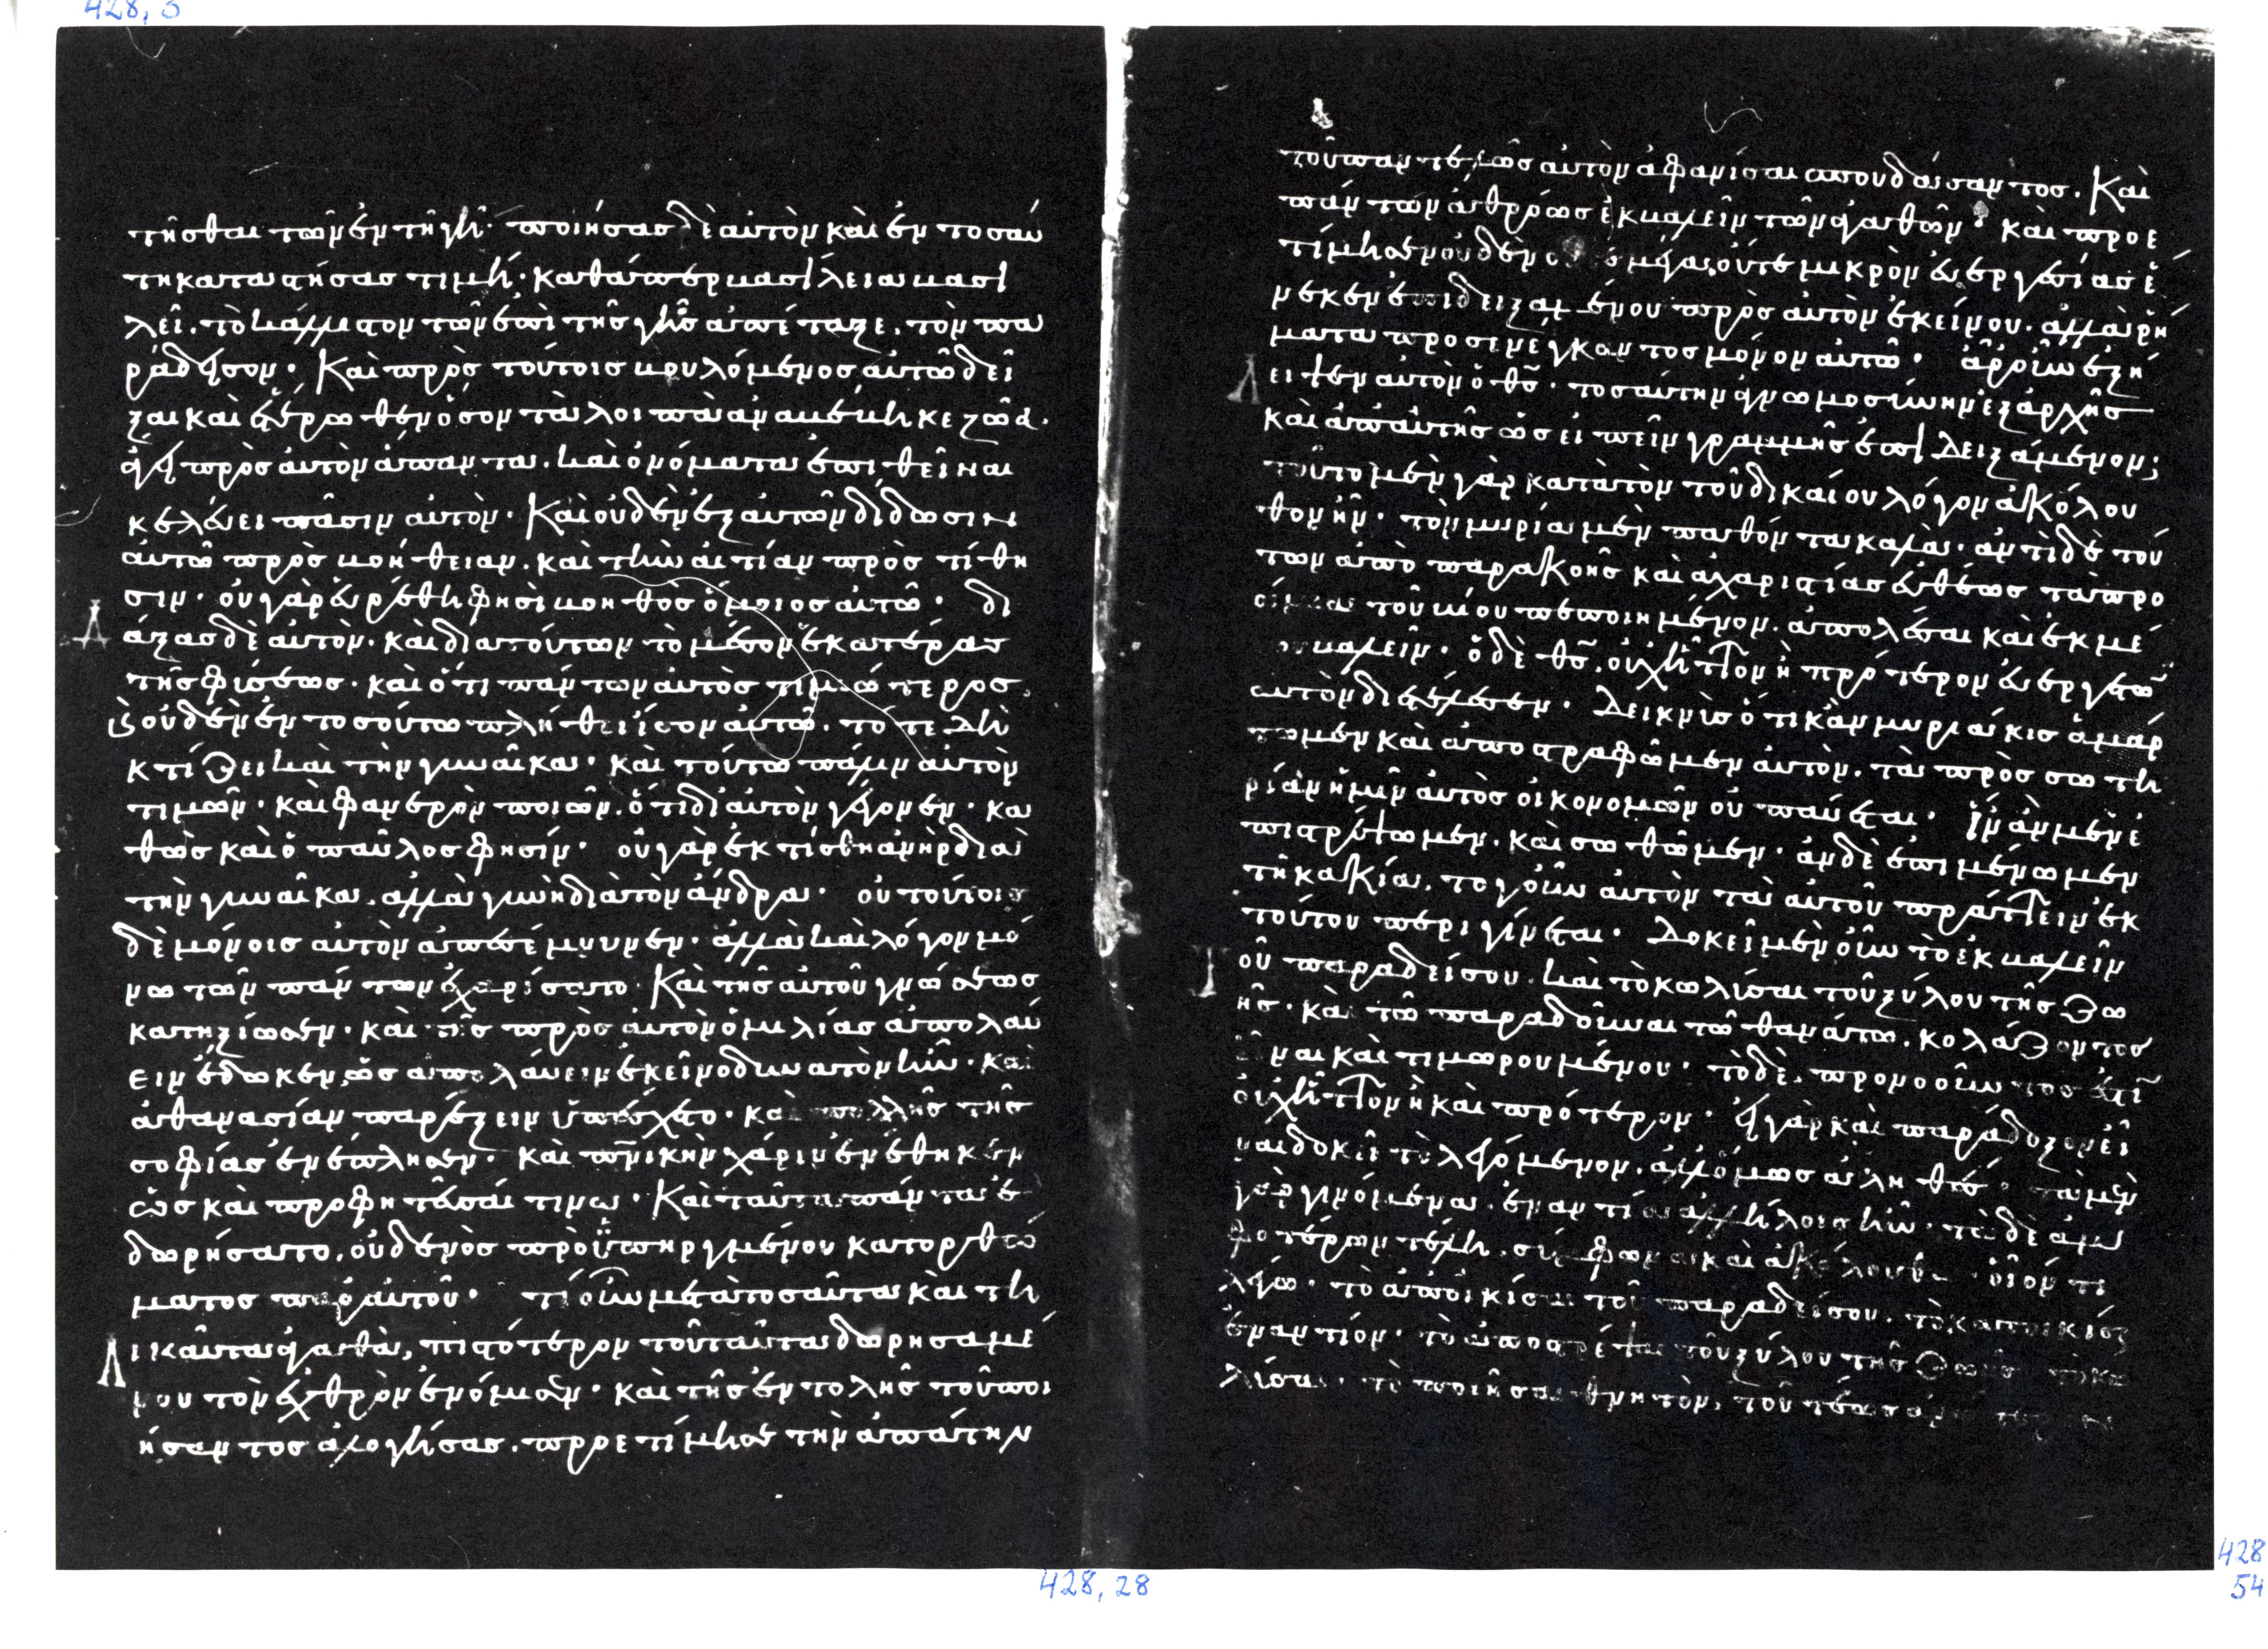 428, 3
τῆσθαι τῶν ἐν τῆ γῆ· ποιήσας δὲ αὐτὸν καὶ ἐν τοσαύ
τη καταστήσας τιμῆ· καθάπερ βασίλεια βασι
λεῖ· τὸ κάλλιστον τῶν ἐπὶ τῆς γῆς ἀπέταξε, τὸν πα
ράδεισον· Καὶ πρὸς τούτοις βουλόμενος αὐτῶ δεῖ
ξαι καὶ ἑτέρωθεν ὅσον τὰ λοιπὰ ἀναβέβηκε ζῶα·
ἄγει πρὸς αὐτὸν ἅπαντα· καὶ ὀνόματα ἐπιθεῖναι
κελεύει πᾶσιν αὐτὸν· Καὶ οὐδὲν ἐξ αὐτῶν δίδωσιν
αὐτῶ πρὸς βοήθειαν· καὶ τὴν αἰτίαν προστίθη
σιν· οὐ γὰρ εὑρέθη φησὶ βοηθὸς ὅμοιος αὐτῶ· δι
άξας δὲ αὐτὸν· καὶ διὰ τούτων τὸ μέσον ἑκατέρας
τῆς φύσεως· καὶ ὅτι πάντων αὐτὸς τιμιώτερος
ὢν οὐδὲν ἐν τοσούτω πλήθει ἴσον αὐτῶ· τότε δὴ
κτίζει καὶ τὴν γυναῖκα· καὶ τούτω πάλιν αὐτὸν
τιμῶν· καὶ φανερὸν ποιῶν, ὅτι δι αὐτὸν γέγονεν· κα
θὼς καὶ ὁ παῦλος φησίν· οὐ γὰρ ἐκτίσθη ἀνὴρ διὰ
τὴν γυναῖκα, ἀλλὰ γυνὴ διὰ τὸν ἄνδρα· οὐ τούτοις
δὲ μόνοις αὐτὸν ἀπεσέμνυνεν· ἀλλὰ καὶ λόγον μό
νω τῶν πάντων ἐχαρίσατο· Καὶ τῆς αὐτοῦ γνώσεως
κατηξίωσεν· καὶ τῆς πρὸς αὐτὸν ὁμιλίας ἀπολαύ
ειν ἔδωκεν, ὡς ἀπολαύειν ἐκεῖνο δυνατὸν ἦν· καὶ
ἀθανασίαν παρέξειν ὑπέσχετο· καὶ πολλῆς τῆς
σοφίας ἐνέπλησεν· καὶ πνικὴν χάριν ἐνέθηκεν
ὡς καὶ προφητεῦσαί τινα· Καὶ ταῦτα πάντα ἐ
δωρήσατο, οὐδενὸς προϋπηργμένου κατορθώ
ματος παρ αὐτοῦ· τί οὖν μετὰ τοσαῦτα καὶ τη
λικαῦτα ἀγαθὰ, πιστότερον τοῦ ταῦτα δωρησαμέ
νου τὸν ἐχθρὸν ἐνόμισεν· καὶ τῆς ἐντολῆς τοῦ ποι
ήσαντος ἀλογήσας, προετίμησε τὴν ἀπάτην
τοῦ παντελῶς αὐτὸν ἀφανίσαι σπουδάσαντος· Καὶ
πάντων ἀθρόως ἐκβαλεῖν τῶν ἀγαθῶν· καὶ προε
τίμησεν οὐδὲν μέγα, οὔτε μικρὸν εὐεργεσίας ἕ
νεκεν ἐπιδειξαμένου πρὸς αὐτὸν ἐκείνου· ἀλλὰ ῥή
ματα προσενεγκόντος μόνον αὐτῶ· ἆρ οὖν ἐξή
λειψεν αὐτὸν ὁ θς· τοσαύτην ἀγνωμοσύνην ἐξ ἀρχῆς
καὶ ἀπ αὐτῆς ὡς εἰπεῖν γραμμῆς ἐπιδειξάμενον;
τοῦτο μὲν γὰρ κατὰ τὸν τοῦ δικαίου λόγον ἀκόλου
θον ἦν· τὸν μυρία μὲν παθόντα καλὰ· ἀντὶ δὲ τού
των ἀπὸ παρακοῆς καὶ ἀχαριστίας εὐθέως τὰ προ
οίμια τοῦ βίου πεποιημένον, ἀπολέσαι καὶ ἐκ μέ
σου βαλεῖν· ὁ δὲ θς, οὐχ ἧττον ἢ πρότερον εὐεργετῶν
αὐτὸν διετέλεσεν· Δεικνὺς ὅτι κἂν μυριάκις ἁμάρ
τωμεν καὶ ἀποστραφῶμεν αὐτὸν, τὰ πρὸς σωτη
ρίαν ἡμῖν αὐτὸς οἰκονομῶν οὐ παύεται· ἵν ἂν μὲν ἐ
πιστρέψωμεν, καὶ σωθῶμεν· ἂν δὲ ἐπιμένωμεν
τῆ κακία, τὸ γοῦν αὐτὸν τὰ αὐτοῦ πράττειν ἐκ
τούτου περιγίνεται· Δοκεῖ μὲν οὖν τὸ ἐκβαλεῖν
τοῦ παραδείσου· καὶ τὸ κωλῦσαι τοῦ ξύλου τῆς ζω
ῆς· καὶ τὸ παραδοῦναι τῶ θανάτω, κολάζοντος
εἶναι καὶ τιμωρουμένου· τὸ δὲ, προνοοῦντος ἐστὶν
οὐχ ἧττον ἢ καὶ πρότερον· εἰ γὰρ καὶ παράδοξον εἶ
ναι δοκεῖ τὸ λεγόμενον, ἀλλ ὅμως ἀληθές· τὰ μὲν
γὰρ γινόμενα, ἐναντία ἀλλήλοις ἦν· τὰ δὲ ἀμ
φοτέρων τέλη, σύμφωνα καὶ ἀκόλουθα· οἷόν τι
λέγω· τὸ ἀποικίσαι τοῦ παραδείσου, τὸ κατοικίσαι
ἐναντίον· τὸ ἀποστρέψαι τοῦ ξύλου τῆς ζωῆς
τὸ ποιῆσαι θνητὸν, τοῦ
428, 28
428
54